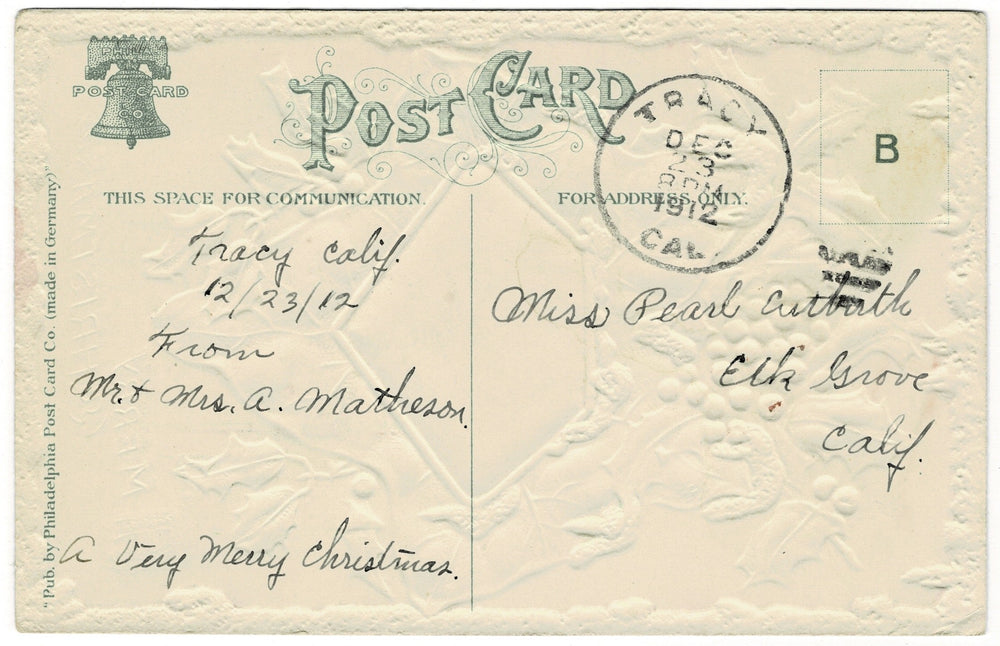 PHILA
POST CARD
CO
POST CARD
THIS SPACE FOR COMMUNICATION.
FOR ADDRESS ONLY.
TRACY
DEC
23
8PM
1912
CAL.
B
Tracy Calif.
12/23/12
From
Mr. & Mrs. A. Matheson.
A Very Merry Christmas.
Miss Pearl Cutbirth
Elk Grove
Calif.
"Pub. by Philadelphia Post Card Co. (made in Germany)"